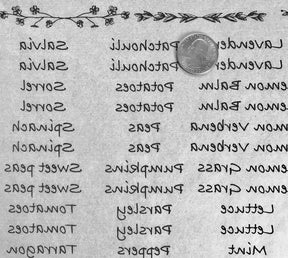 Lavender Patchouli Salvia
Lavender Patchouli Salvia
emon Balm Potatoes Sorrel
emon Balm Potatoes Sorrel
mon Verbena Peas Spinach
mon Verbena Peas Spinach
emon Grass Pumpkins Sweet peas
emon Grass Pumpkins Sweet peas
Lettuce Parsley Tomatoes
Lettuce Parsley Tomatoes
Mint Peppers Tarragon